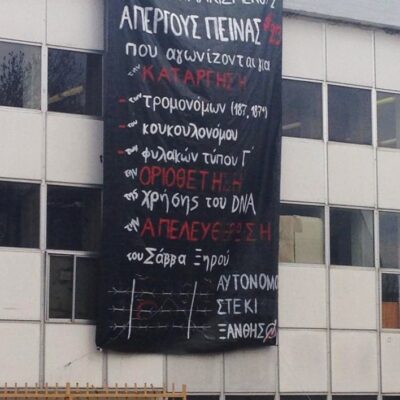 ΑΠΕΡΓΟΥΣ ΠΕΙΝΑΣ
που αγωνίζονται για
την ΚΑΤΑΡΓΗΣΗ
- των τρομονόμων (187, 187Α)
- του κουκουλονόμου
- των φυλακών τύπου Γ΄
την ΟΡΙΟΘΕΤΗΣΗ
της χρήσης του DNA
την ΑΠΕΛΕΥΘΕΡΩΣΗ
του Σάββα Ξηρού
ΑΥΤΟΝΟΜΟ
ΣΤΕΚΙ
ΞΑΝΘΗΣ